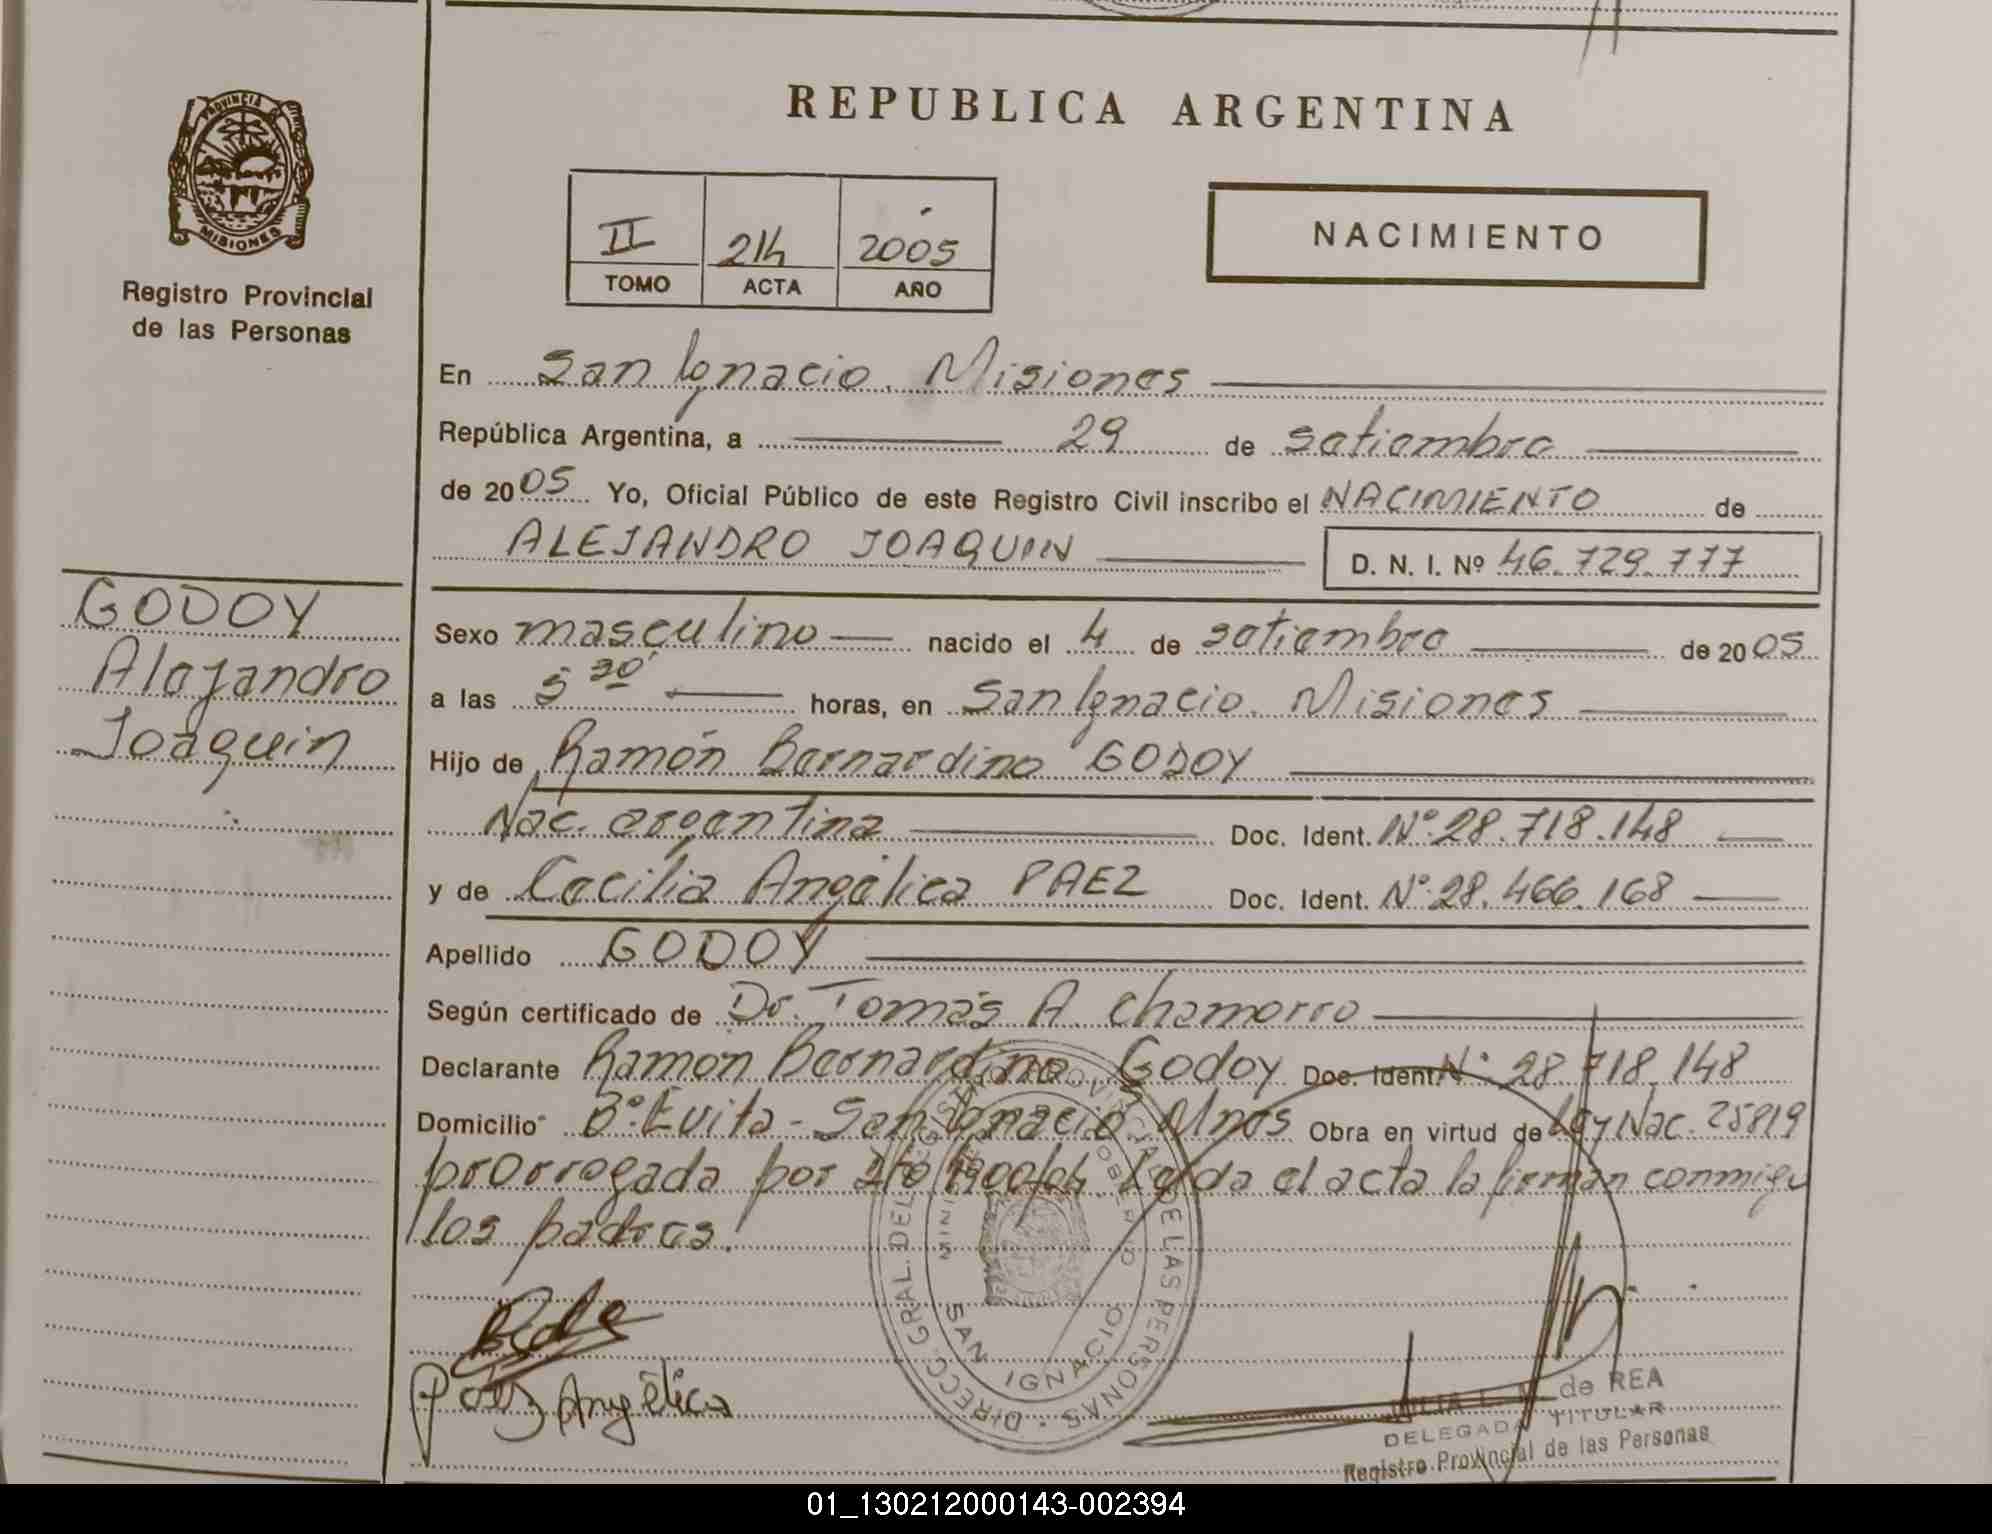 PROVINCIA
MISIONES
Registro Provincial
de las Personas
REPUBLICA ARGENTINA
II 214 2005
TOMO ACTA AÑO
NACIMIENTO
En San Ignacio. Misiones
República Argentina, a 29 de setiembre
de 2005 Yo, Oficial Público de este Registro Civil inscribo el NACIMIENTO de
ALEJANDRO JOAQUIN D. N. I. Nº 46.729.777
GODOY
Alejandro
Joaquin
Sexo masculino nacido el 4 de setiembre de 2005
a las 5 30' horas, en San Ignacio. Misiones
Hijo de Ramón Bernardino GODOY
Nac. argentina Doc. Ident. Nº 28.718.148
y de Cecilia Angélica PAEZ Doc. Ident. Nº 28.466.168
Apellido GODOY
Según certificado de Dr. Tomás A. Chamorro
Declarante Ramon Bernardino Godoy Doc. Ident. Nº 28.718.148
Domicilio Bº Evita - San Ignacio Mnes Obra en virtud de Ley Nac. 25819
prorrogada por Dto 1900/04. Leida el acta la firman conmigo
los padres.
DIRECC. GRAL. DEL REGISTRO PROVINCIAL DE LAS PERSONAS
SAN IGNACIO
Paez Angélica
de REA
DELEGADA TITULAR
Registro Provincial de las Personas
01_130212000143-002394